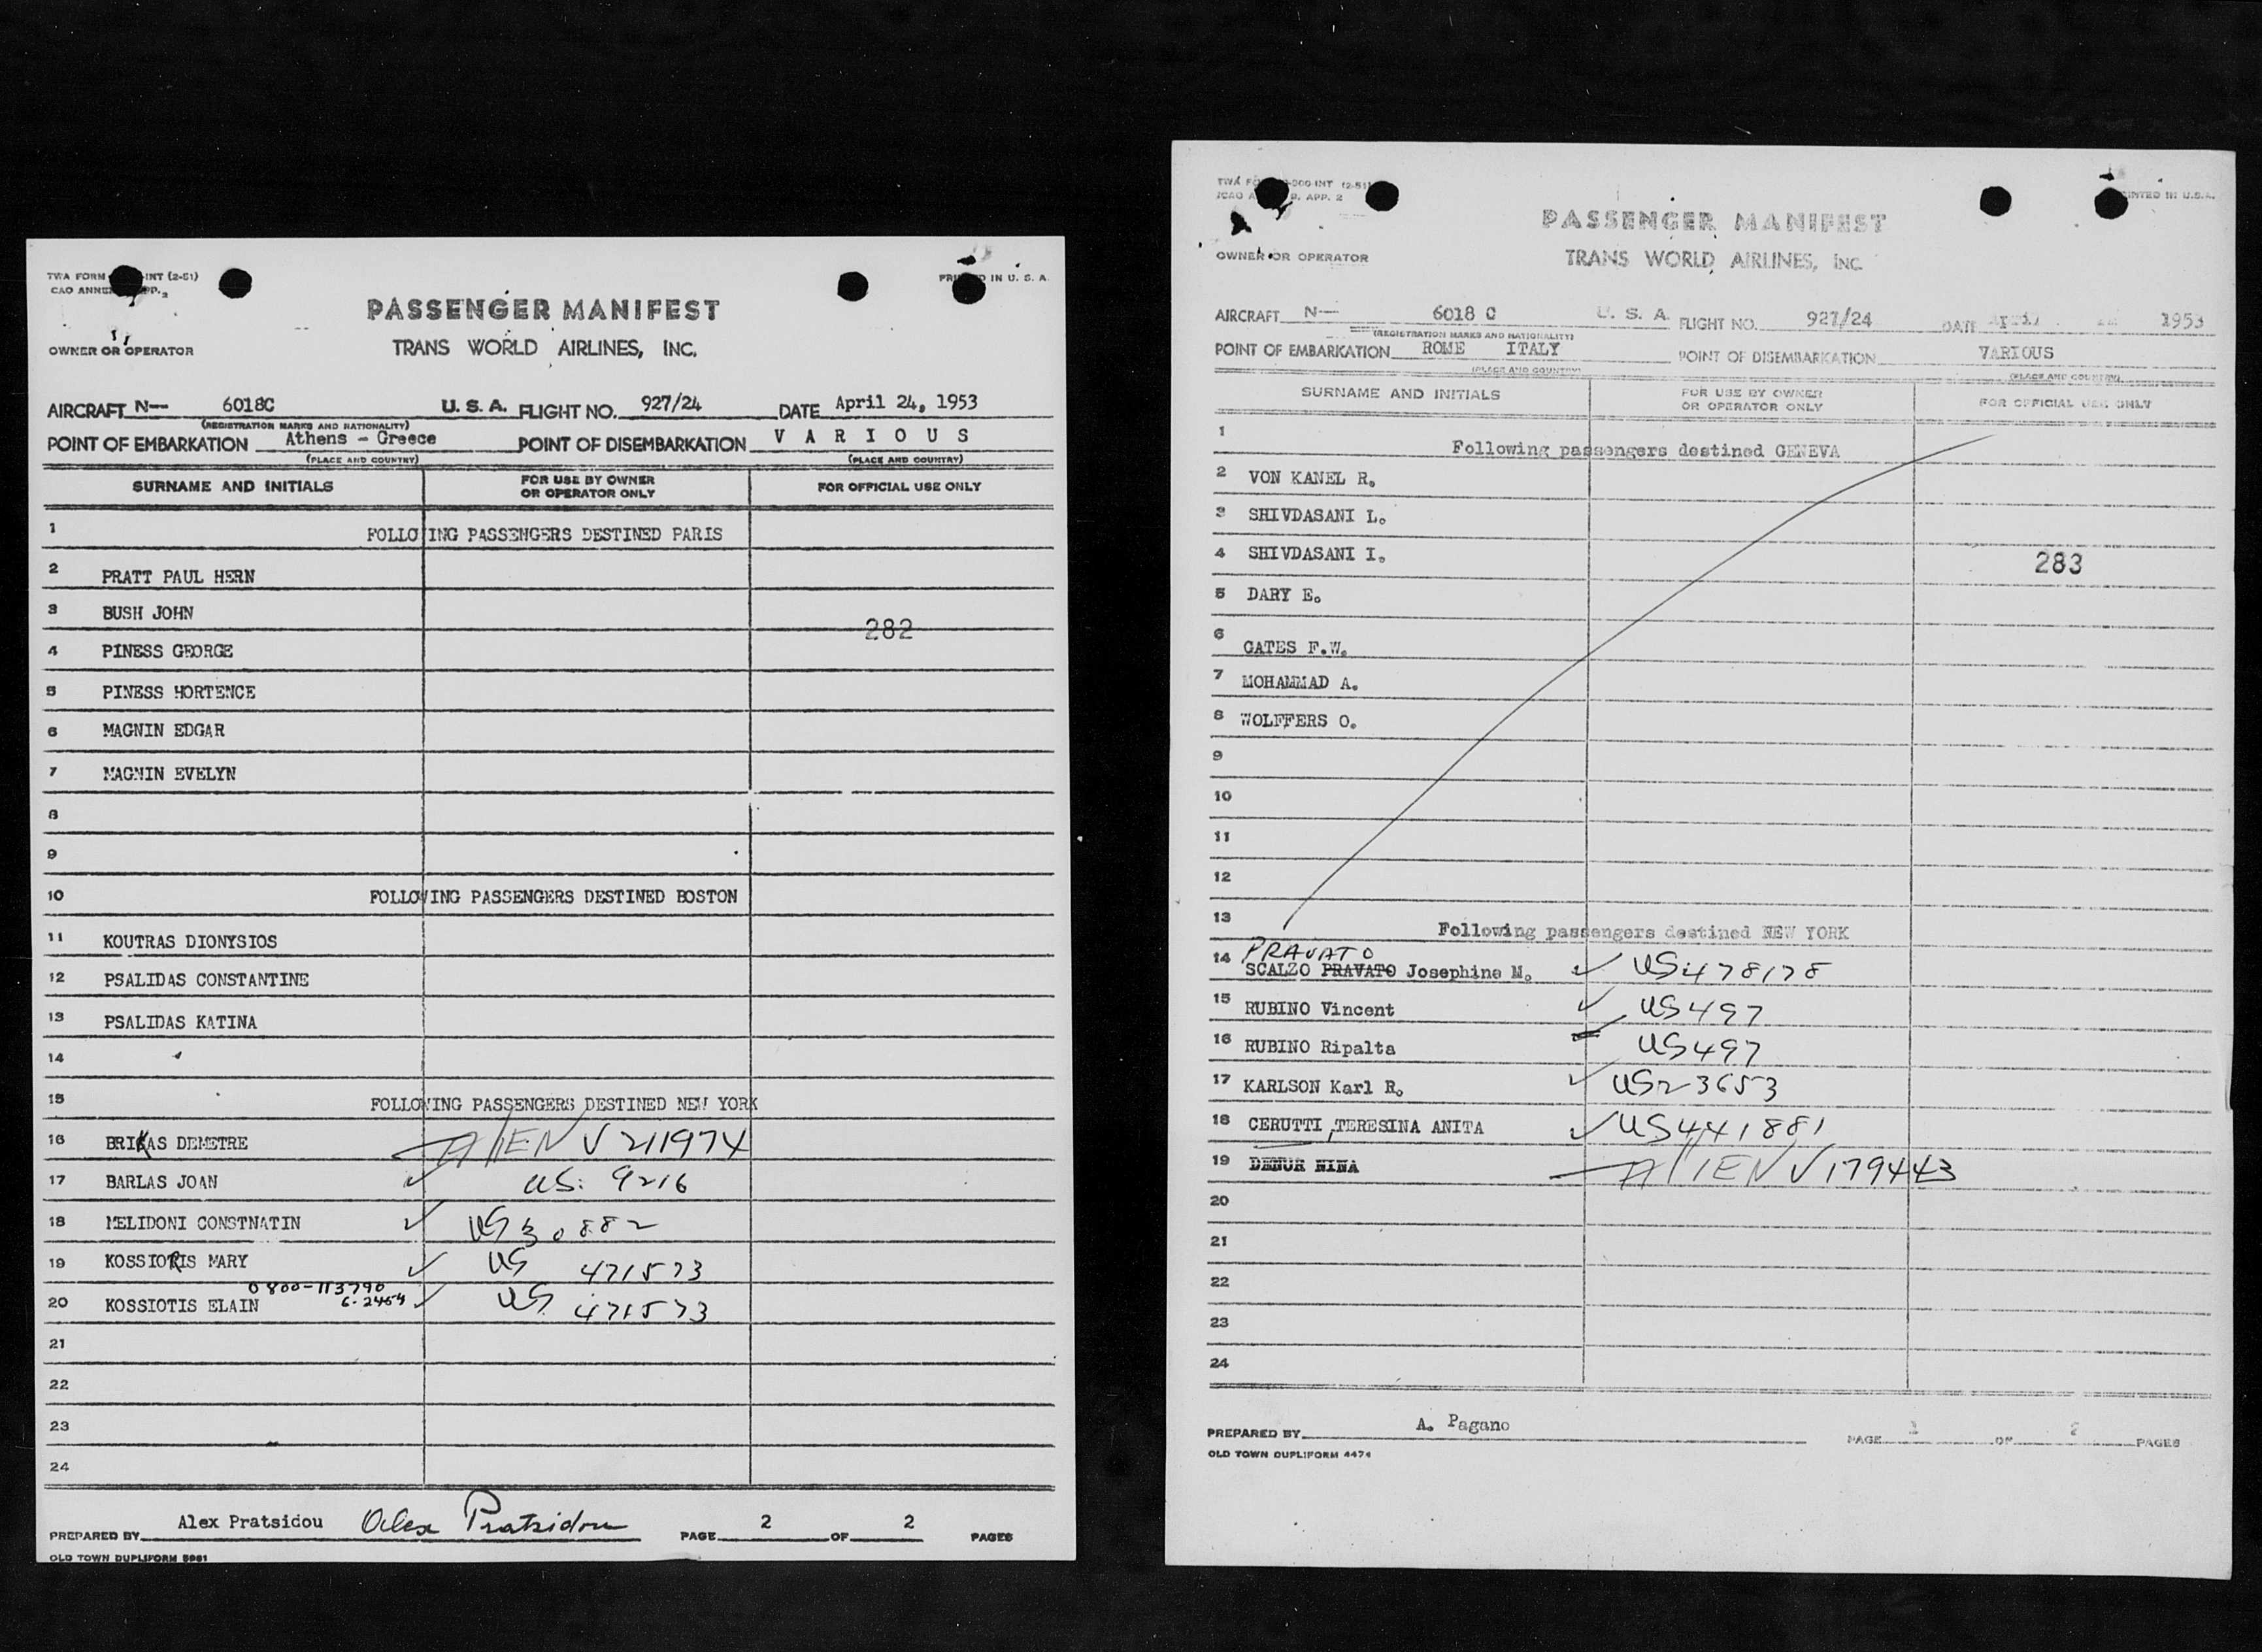 TWA FORM INT (2-51)
PRINTED IN U. S. A.
PASSENGER MANIFEST
OWNER OR OPERATOR
TRANS WORLD AIRLINES, INC.
AIRCRAFT N— 6018C U. S. A. FLIGHT NO. 927/24 DATE April 24, 1953
(REGISTRATION MARKS AND NATIONALITY)
POINT OF EMBARKATION Athens - Greece POINT OF DISEMBARKATION V A R I O U S
(PLACE AND COUNTRY) (PLACE AND COUNTRY)
SURNAME AND INITIALS FOR USE BY OWNER OR OPERATOR ONLY FOR OFFICIAL USE ONLY
1 FOLLOWING PASSENGERS DESTINED PARIS
2 PRATT PAUL HERN
3 BUSH JOHN
282
4 PINESS GEORGE
5 PINESS HORTENCE
6 MAGNIN EDGAR
7 MAGNIN EVELYN
8
9
10 FOLLOWING PASSENGERS DESTINED BOSTON
11 KOUTRAS DIONYSIOS
12 PSALIDAS CONSTANTINE
13 PSALIDAS KATINA
14
15 FOLLOWING PASSENGERS DESTINED NEW YORK
16 BRIKAS DEMETRE ALIEN V 211974
17 BARLAS JOAN ✓ US: 9216
18 MELIDONI CONSTNATIN ✓ US 30882
19 KOSSIORIS MARY ✓ US 471573
0800-113790
20 KOSSIOTIS ELAIN 6-2454 ✓ US 471573
21
22
23
24
PREPARED BY Alex Pratsidou Alex Pratsidou PAGE 2 OF 2 PAGES
OLD TOWN DUPLIFORM 5981
TWA FO -000-INT (2-51)
ICAO A 9. APP. 2 PRINTED IN U.S.A.
PASSENGER MANIFEST
OWNER OR OPERATOR
TRANS WORLD AIRLINES, INC.
AIRCRAFT N— 6018 C U. S. A. FLIGHT NO. 927/24 DATE April 1953
(REGISTRATION MARKS AND NATIONALITY)
POINT OF EMBARKATION ROME ITALY POINT OF DISEMBARKATION VARIOUS
(PLACE AND COUNTRY) (PLACE AND COUNTRY)
SURNAME AND INITIALS FOR USE BY OWNER OR OPERATOR ONLY FOR OFFICIAL USE ONLY
1 Following passengers destined GENEVA
2 VON KANEL R.
3 SHIVDASANI L.
4 SHIVDASANI I. 283
5 DARY E.
6 GATES F.W.
7 MOHAMMAD A.
8 WOLFFERS O.
9
10
11
12
13 Following passengers destined NEW YORK
PRAVATO
14 SCALZO PRAVATO Josephine M. ✓ US478178
15 RUBINO Vincent ✓ US497
16 RUBINO Ripalta US497
17 KARLSON Karl R. ✓ US23653
18 CERUTTI, TERESINA ANITA ✓ US441881
19 DENUR NINA ALIEN V179443
20
21
22
23
24
PREPARED BY A. Pagano PAGE OF 2 PAGES
OLD TOWN DUPLIFORM 4474